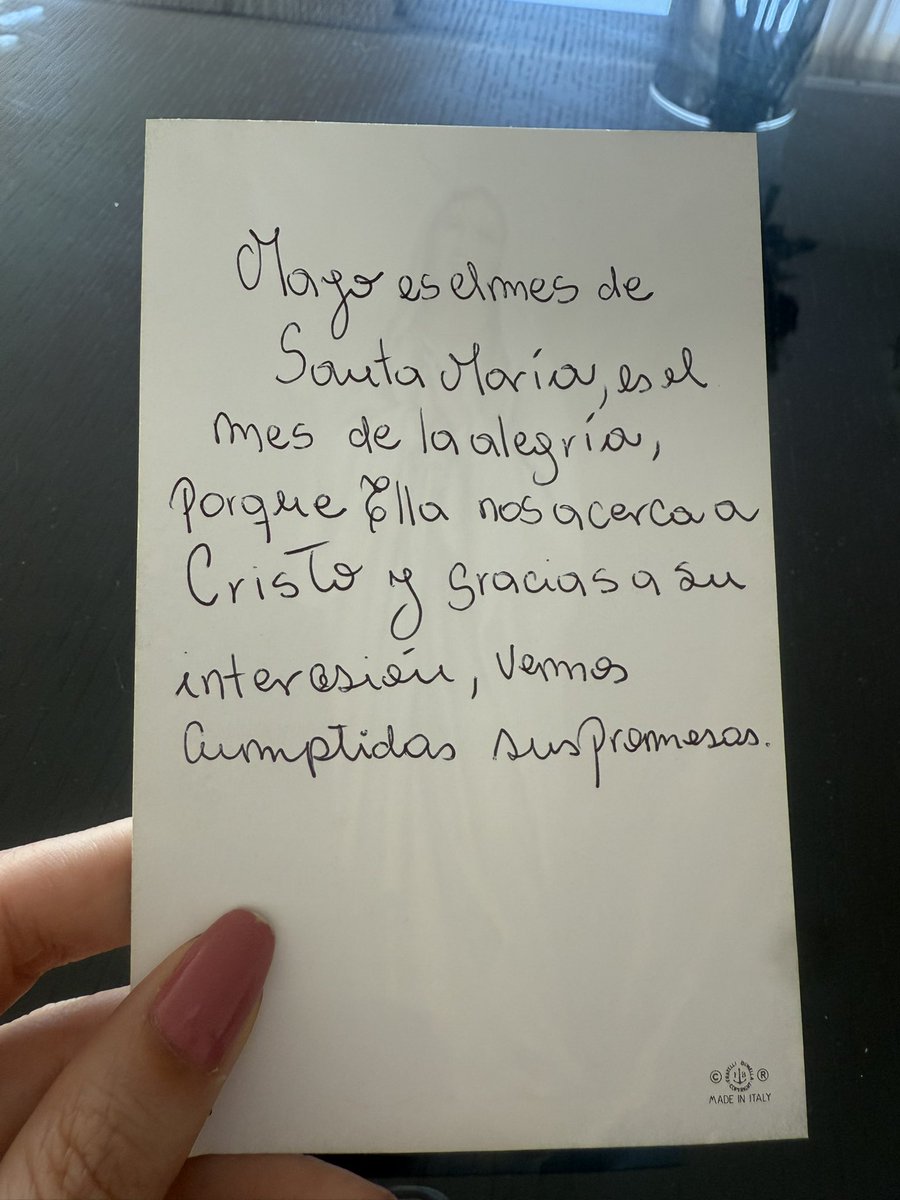 Mayo es el mes de
Santa María, es el
mes de la alegría,
porque Ella nos acerca a
Cristo y gracias a su
intercesión, vemos
cumplidas sus promesas.
© FRATELLI BONELLA COPYRIGHT ®
MADE IN ITALY